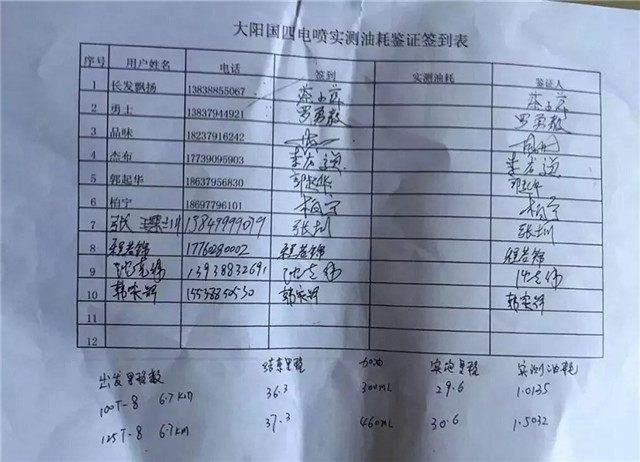 大阳国四电喷实测油耗鉴证签到表
序号 用户姓名 电话 签到 实测油耗 鉴证人
1 长发飘扬 13838855067
2 勇士 13837944921 罗勇毅 罗勇毅
3 品味 18237916242
4 杰布 17739095903
5 郭起华 18637956830 郭起华 郭起华
6 柏宁 18697796101 柏宁 柏宁
7 张 13849999079 张圳 张圳
8 程岩锦 1776280002 程岩锦 程岩锦
9 13938832691
10 韩 15538850530 韩 韩
11
12
出发里程数 结束里程 加油 实跑里程 实测油耗
100T-8 6.7km 36.3 300mL 29.6 1.0135
125T-8 6.7km 37.3 460mL 30.6 1.5032